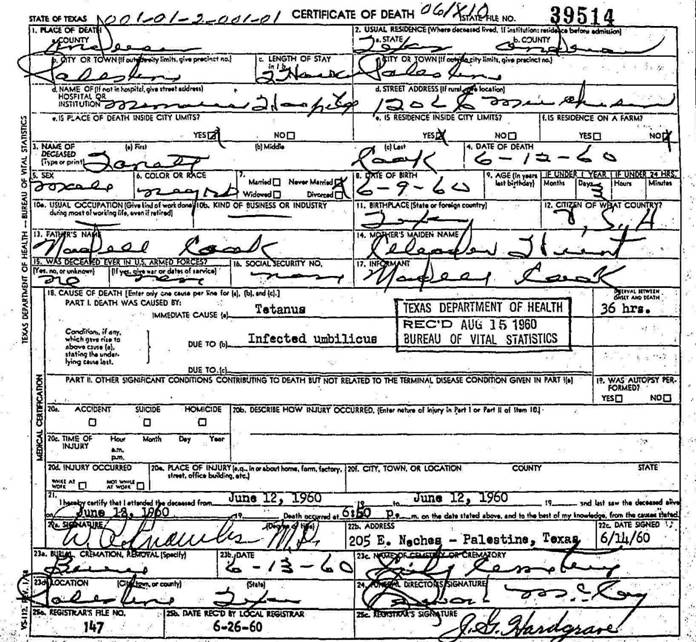 STATE OF TEXAS 001-01-2-001-01 CERTIFICATE OF DEATH STATE FILE NO. 39514
1. PLACE OF DEATH
a. COUNTY
2. USUAL RESIDENCE (Where deceased lived. If institution: residence before admission)
a. STATE Texas b. COUNTY
b. CITY OR TOWN (If outside city limits, give precinct no.) Palestine
c. LENGTH OF STAY in 1b
CITY OR TOWN (If outside city limits, give precinct no.) Palestine
d. NAME OF (If not in hospital, give street address)
HOSPITAL OR
INSTITUTION
d. STREET ADDRESS (If rural, give location)
e. IS PLACE OF DEATH INSIDE CITY LIMITS?
YES NO
e. IS RESIDENCE INSIDE CITY LIMITS?
YES NO
f. IS RESIDENCE ON A FARM?
YES NO
3. NAME OF DECEASED (Type or print) (a) First (b) Middle (c) Last Cook
4. DATE OF DEATH 6-12-60
5. SEX male
6. COLOR OR RACE negro
7. Married Never Married Widowed Divorced
8. DATE OF BIRTH 6-9-60
9. AGE (In years last birthday) IF UNDER 1 YEAR Months Days 3 IF UNDER 24 HRS. Hours Minutes
10a. USUAL OCCUPATION (Give kind of work done during most of working life, even if retired)
10b. KIND OF BUSINESS OR INDUSTRY
11. BIRTHPLACE (State or foreign country) Texas
12. CITIZEN OF WHAT COUNTRY? U.S.A
13. FATHER'S NAME Cook
14. MOTHER'S MAIDEN NAME
15. WAS DECEASED EVER IN U.S. ARMED FORCES?
(Yes, no, or unknown) (If yes, give war or dates of service)
no
16. SOCIAL SECURITY NO.
17. INFORMANT Cook
18. CAUSE OF DEATH [Enter only one cause per line for (a), (b), and (c).]
PART I. DEATH WAS CAUSED BY:
IMMEDIATE CAUSE (a) Tetanus
INTERVAL BETWEEN ONSET AND DEATH
36 hrs.
Conditions, if any, which gave rise to above cause (a), stating the underlying cause last.
DUE TO (b) Infected umbilicus
DUE TO (c)
TEXAS DEPARTMENT OF HEALTH
REC'D AUG 15 1960
BUREAU OF VITAL STATISTICS
PART II. OTHER SIGNIFICANT CONDITIONS CONTRIBUTING TO DEATH BUT NOT RELATED TO THE TERMINAL DISEASE CONDITION GIVEN IN PART I(a)
19. WAS AUTOPSY PERFORMED?
YES NO
20a. ACCIDENT SUICIDE HOMICIDE
20b. DESCRIBE HOW INJURY OCCURRED. (Enter nature of injury in Part I or Part II of Item 18.)
20c. TIME OF INJURY Hour a.m. p.m. Month Day Year
20d. INJURY OCCURRED
WHILE AT WORK NOT WHILE AT WORK
20e. PLACE OF INJURY (e.g., in or about home, farm, factory, street, office building, etc.)
20f. CITY, TOWN, OR LOCATION COUNTY STATE
21. I hereby certify that I attended the deceased from June 12, 1960 to June 12, 1960 and last saw the deceased alive
on 19 Death occurred at p. m. on the date stated above, and to the best of my knowledge, from the causes stated.
22a. SIGNATURE (Degree or title) M.D.
22b. ADDRESS
205 E. Neches - Palestine, Texas
22c. DATE SIGNED
6/14/60
23a. BURIAL, CREMATION, REMOVAL (Specify)
23b. DATE 6-13-60
23c. NAME OF CEMETERY OR CREMATORY Cemetery
23d. LOCATION (City, town, or county) (State)
Palestine Texas
24. FUNERAL DIRECTOR'S SIGNATURE
25a. REGISTRAR'S FILE NO.
147
25b. DATE REC'D BY LOCAL REGISTRAR
6-26-60
25c. REGISTRAR'S SIGNATURE
J.G. Hardgrave
TEXAS DEPARTMENT OF HEALTH — BUREAU OF VITAL STATISTICS
MEDICAL CERTIFICATION